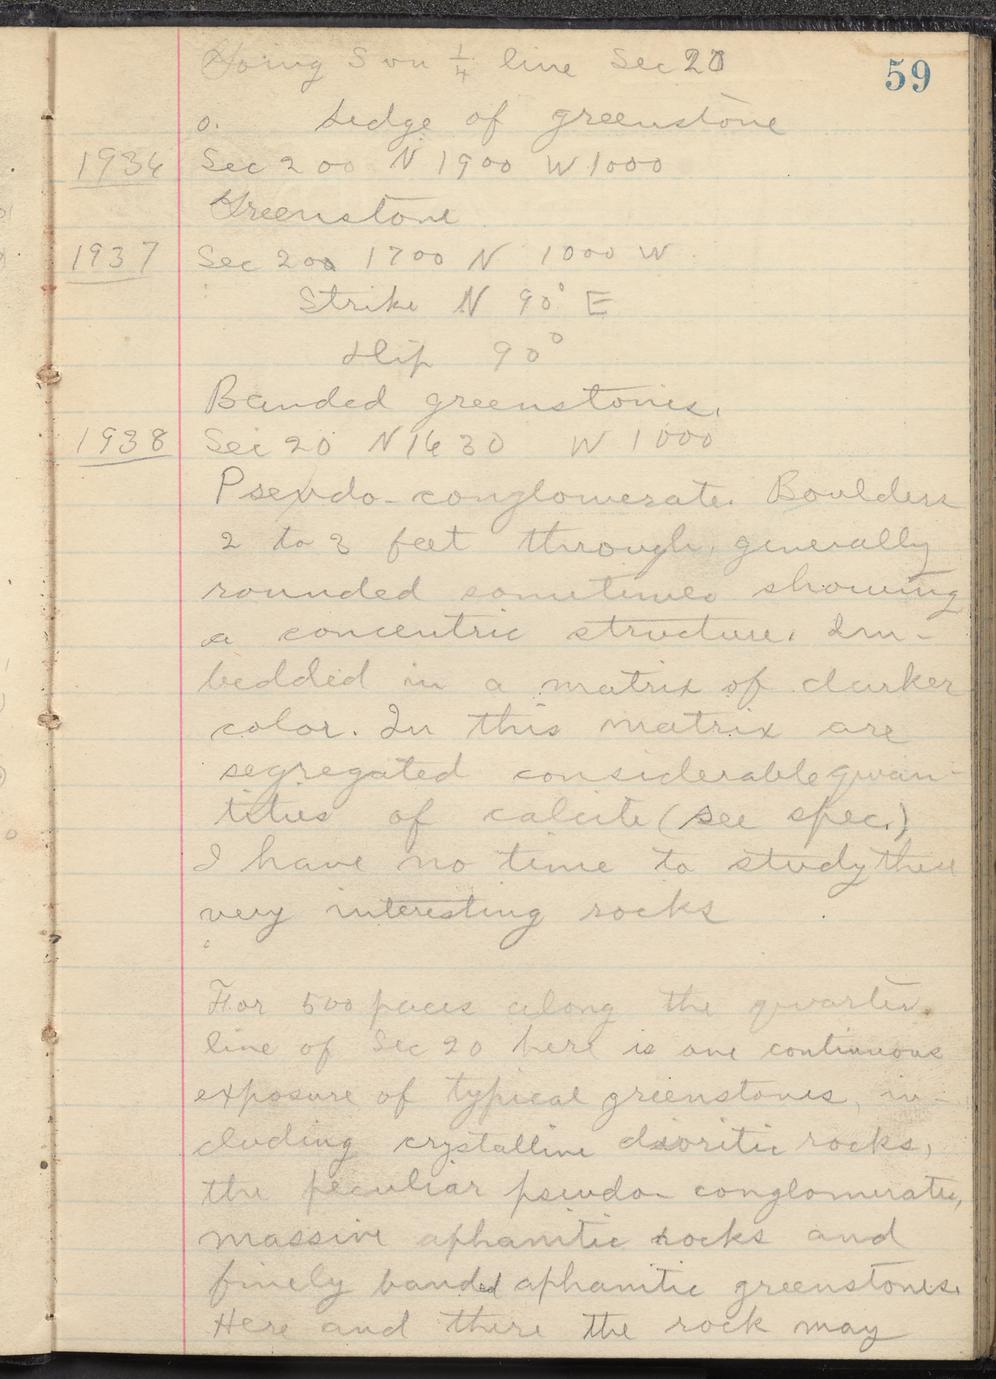 59
Going S on 1/4 line Sec 20
o. Ledge of greenstone
1936 Sec 200 N 1900 W 1000
Greenstone
1937 Sec 200 1700 N 1000 W
Strike N 90° E
Dip 90°
Banded greenstones.
1938 Sec 20 N 1630 W 1000
Pseudo-conglomerate. Boulders
2 to 3 feet through, generally
rounded sometimes showing
a concentric structure. Im-
bedded in a matrix of darker
color. In this matrix are
segregated considerable quan-
tities of calcite (see spec.)
I have no time to study these
very interesting rocks
For 500 paces along the quarter
line of Sec 20 here is one continuous
exposure of typical greenstones, in-
cluding crystalline dioritic rocks,
the peculiar pseudo-conglomerates,
massive aphanitic rocks and
finely banded aphanitic greenstones.
Here and there the rock may